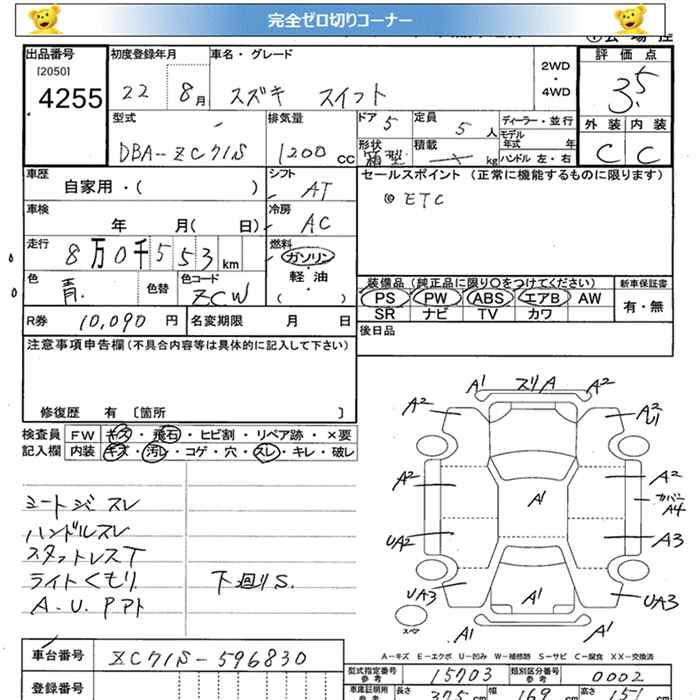 完全ゼロ切りコーナー
出品番号
[2050]
4255
初度登録年月
22 8月
車名・グレード
スズキ スイフト
2WD
・
4WD
評価点
3.5
外装 内装
C C
型式
DBA-ZC71S
排気量
1200 CC
ドア 5
定員 5 人
ディーラー・並行
モデル
年式 年
ハンドル 左・右
形状
箱型
積載 kg
車歴
自家用・( )
シフト
AT
セールスポイント (正常に機能するものに限ります)
◎ ETC
車検
年 月( 日)
冷房
AC
走行
8万0千553km
燃料
ガソリン
・
軽・油
( )
色
青.
色替
色コード
ZCW
装備品 (純正品に限り〇をつけてください)
PS PW ABS エアB AW
SR ナビ TV カワ
新車保証書
有・無
R券 10,090 円
名変期限 月 日
後日品
注意事項申告欄 (不具合内容等は具体的に記入して下さい)
修復歴 有 〔箇所 〕
検査員 FW キズ・飛石・ヒビ割・リペア跡・×要
記入欄 内装 キズ・汚レ・コゲ・穴・スレ・キレ・破レ
シートシミ スレ
ハンドルスレ
スタットレスT
ライトくもり
A.U.Pアト
下廻りS.
A1 スリA A2
A2 A2
A2 A1 A2
カバー
A4
UA2 A3
UA3 A1 UA3
スペア
A1 A1
A－キズ E－エクボ U－凹み W－補修跡 S－サビ C－腐食 XX－交換済
車台番号 ZC71S-596830
登録番号
型式指定番号
参考
15703
類別区分番号
参考
0002
車庫証明用
参考
長さ 375 cm 幅 169 cm 高さ 151 cm